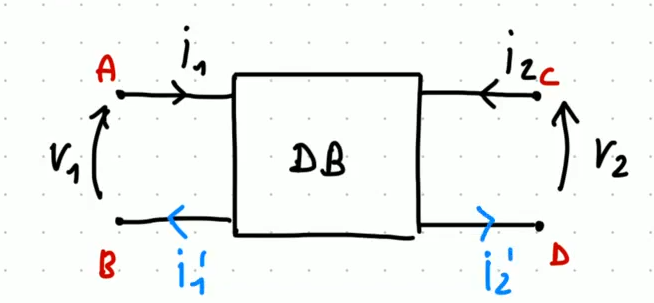 A i₁ i₂ C
V₁ DB V₂
B i₁' i₂' D